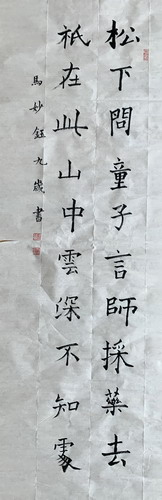 松下問童子言師採藥去
祇在此山中雲深不知處
馬妙鈺九歲書